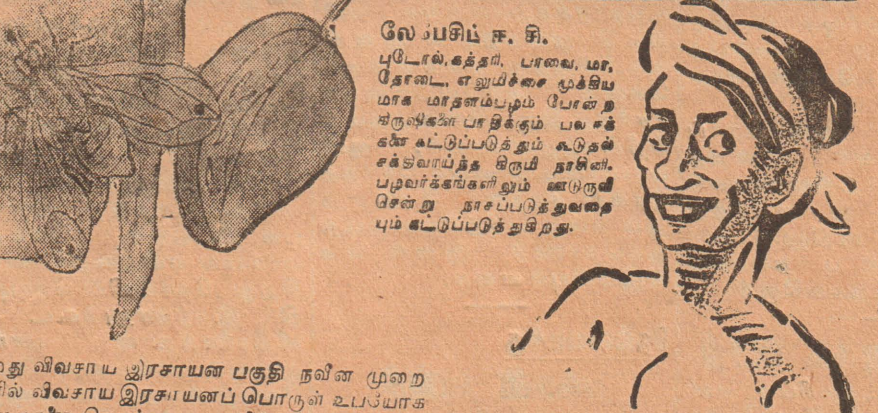 லேபேசிட் ஈ. சி.
புடோல், கத்தரி, பாவை, மா,
தோடை, எலுமிச்சை முக்கிய
மாக மாதளம்பழம் போன்ற
கிருஷிகளை பாதிக்கும் பல ஈக்
களை கட்டுப்படுத்தும் கூடுதல்
சக்திவாய்ந்த கிருமி நாசினி.
பழவர்க்கங்களிலும் ஊடுருவி
சென்று நாசப்படுத்துவதை
யும் கட்டுப்படுத்துகிறது.
விவசாய இரசாயன பகுதி நவீன முறை
விவசாய இரசாயனப் பொருள் உபயோக